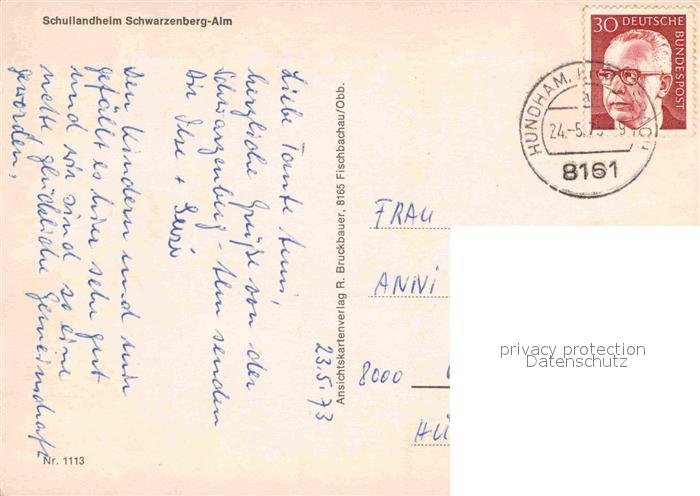 Schullandheim Schwarzenberg-Alm
30 DEUTSCHE
BUNDESPOST
HUNDHAM,
a
24.-5.73-9
8161
23.5.73
Liebe Tante Anni,
herzliche Grüße von der
Schwarzenberg-Alm senden
Dir Ilse +
Den Kindern und mir
gefällt es hier sehr gut
und wir sind so eine
nette glückliche Gemeinschaft
geworden.
Ansichtskartenverlag R. Bruckbauer, 8165 Fischbachau/Obb.
FRAU
ANNI
8000
Nr. 1113
privacy protection
Datenschutz